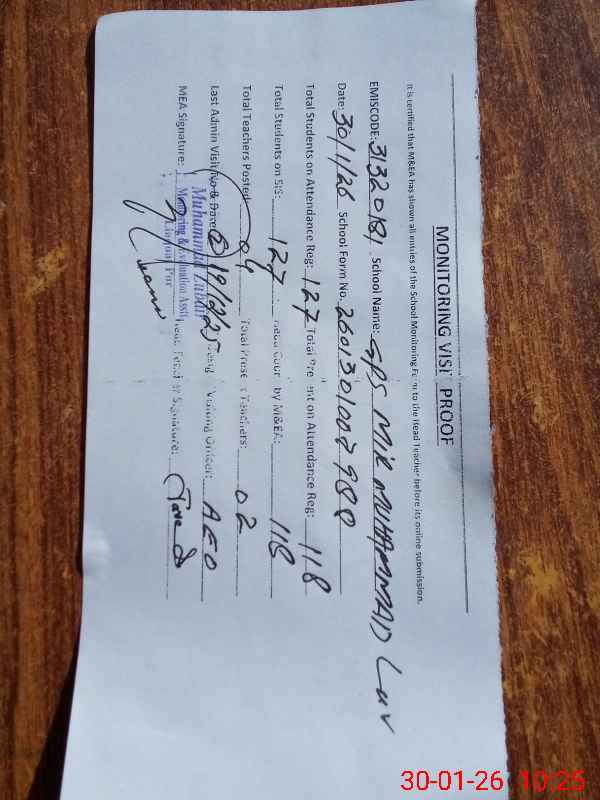 MONITORING VISIT PROOF
It is certified that M&EA has shown all entries of the School Monitoring Form to the Head Teacher before its online submission.
EMISCODE: 31320181 School Name: GPS MIR MUHAMMAD
Date: 30/1/26 School Form No. 2601301007988
Total Students on Attendance Reg: 127 Total Present on Attendance Reg: 118
Total Students on SIS: 127 Head Count by M&EA: 118
Total Teachers Posted: 04 Total Present Teachers: 02
Last Admin Visit No & Date: 19/12/25 Visiting Officer: AEO
MEA Signature: Head Teacher Signature:
Muhammad Zubair
Monitoring & Evaluation Asstt
30-01-26 10:25